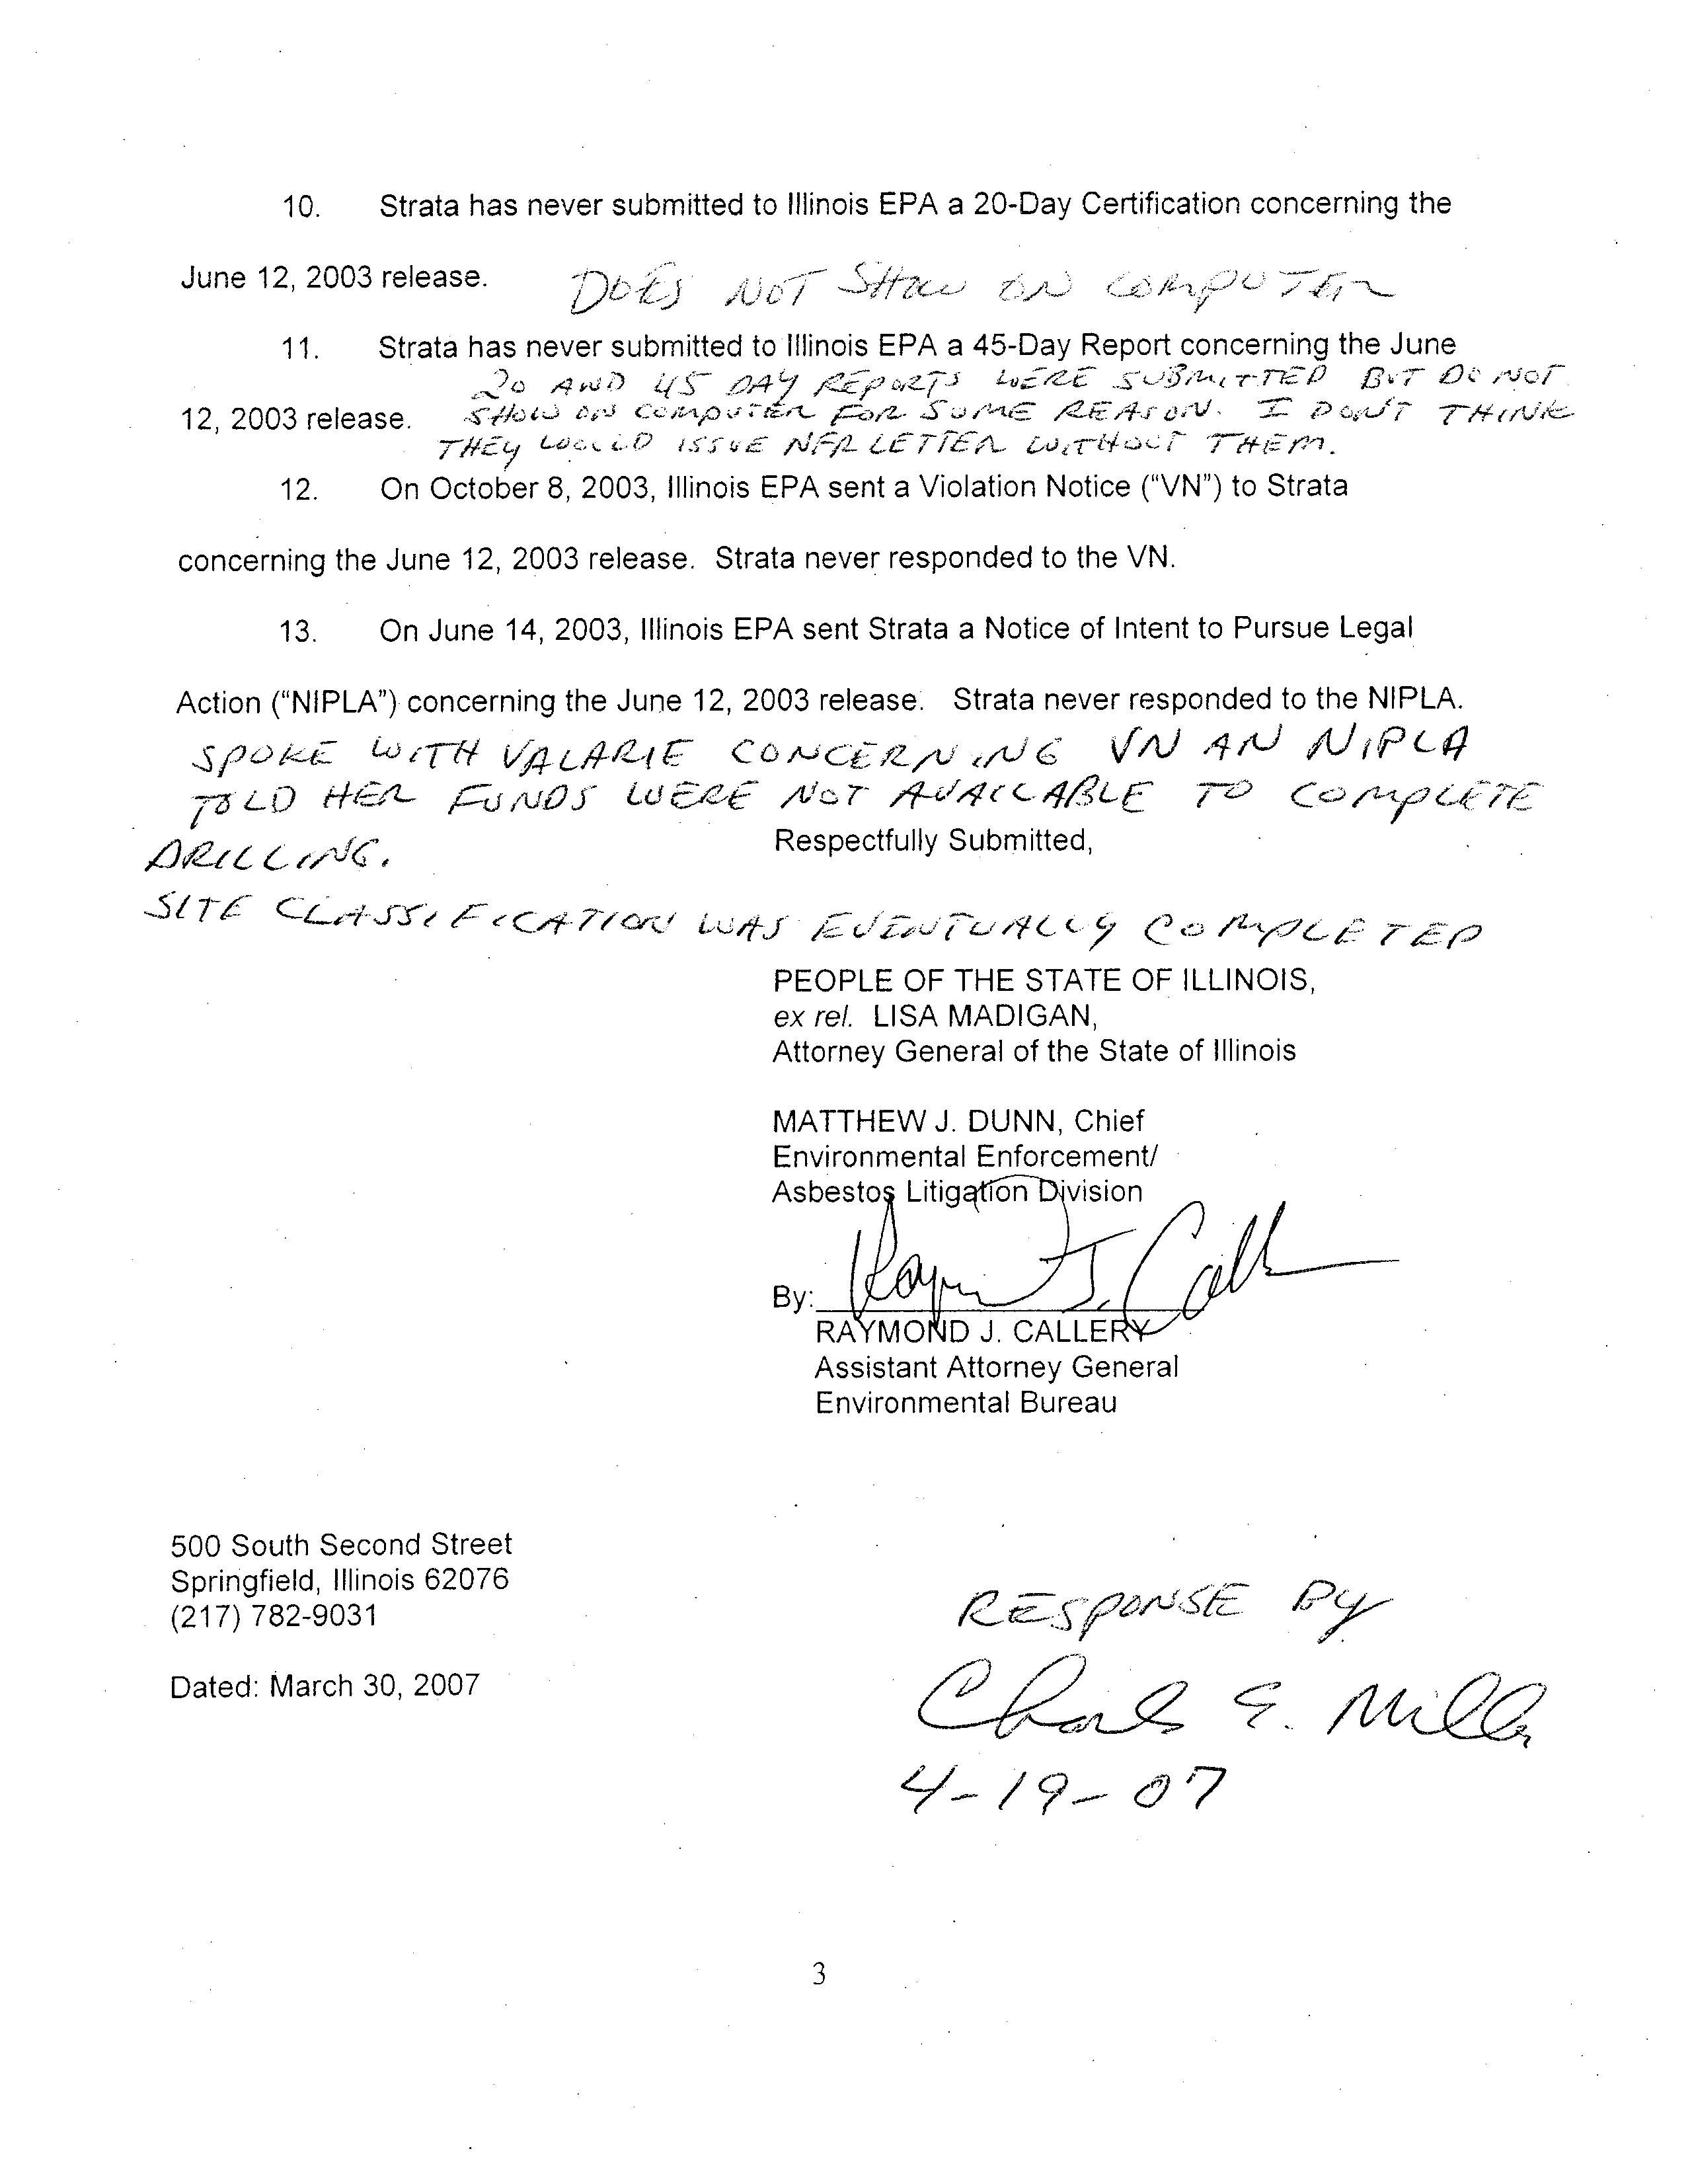 10. Strata has never submitted to Illinois EPA a 20-Day Certification concerning the
June 12, 2003 release. DOES NOT SHOW ON COMPUTER
11. Strata has never submitted to Illinois EPA a 45-Day Report concerning the June
20 AND 45 DAY REPORTS WERE SUBMITTED BUT DO NOT
12, 2003 release. SHOW ON COMPUTER FOR SOME REASON. I DON'T THINK
THEY WOULD ISSUE NFR LETTER WITHOUT THEM.
12. On October 8, 2003, Illinois EPA sent a Violation Notice ("VN") to Strata
concerning the June 12, 2003 release. Strata never responded to the VN.
13. On June 14, 2003, Illinois EPA sent Strata a Notice of Intent to Pursue Legal
Action ("NIPLA") concerning the June 12, 2003 release. Strata never responded to the NIPLA.
SPOKE WITH VALARIE CONCERNING VN AN NIPLA
TOLD HER FUNDS WERE NOT AVAILABLE TO COMPLETE
DRILLING. Respectfully Submitted,
SITE CLASSIFICATION WAS EVENTUALLY COMPLETED
PEOPLE OF THE STATE OF ILLINOIS,
ex rel. LISA MADIGAN,
Attorney General of the State of Illinois
MATTHEW J. DUNN, Chief
Environmental Enforcement/
Asbestos Litigation Division
By: Raymond J. Callery
RAYMOND J. CALLERY
Assistant Attorney General
Environmental Bureau
500 South Second Street
Springfield, Illinois 62076
(217) 782-9031
Dated: March 30, 2007
RESPONSE BY
Charles E. Miller
4-19-07
3